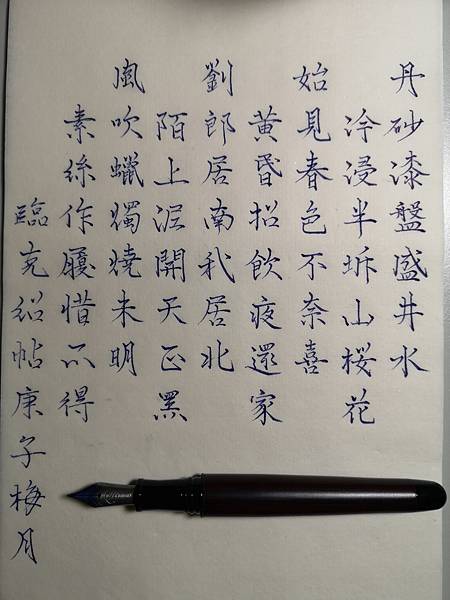 丹砂漆盤盛井水
冷浸半坼山桜花
始見春色不奈喜
黄昏招飲疲還家
劉郎居南我居北
陌上泥開天正黑
風吹蠟燭燒未明
素絲作履惜不得
臨克紹帖庚子梅月